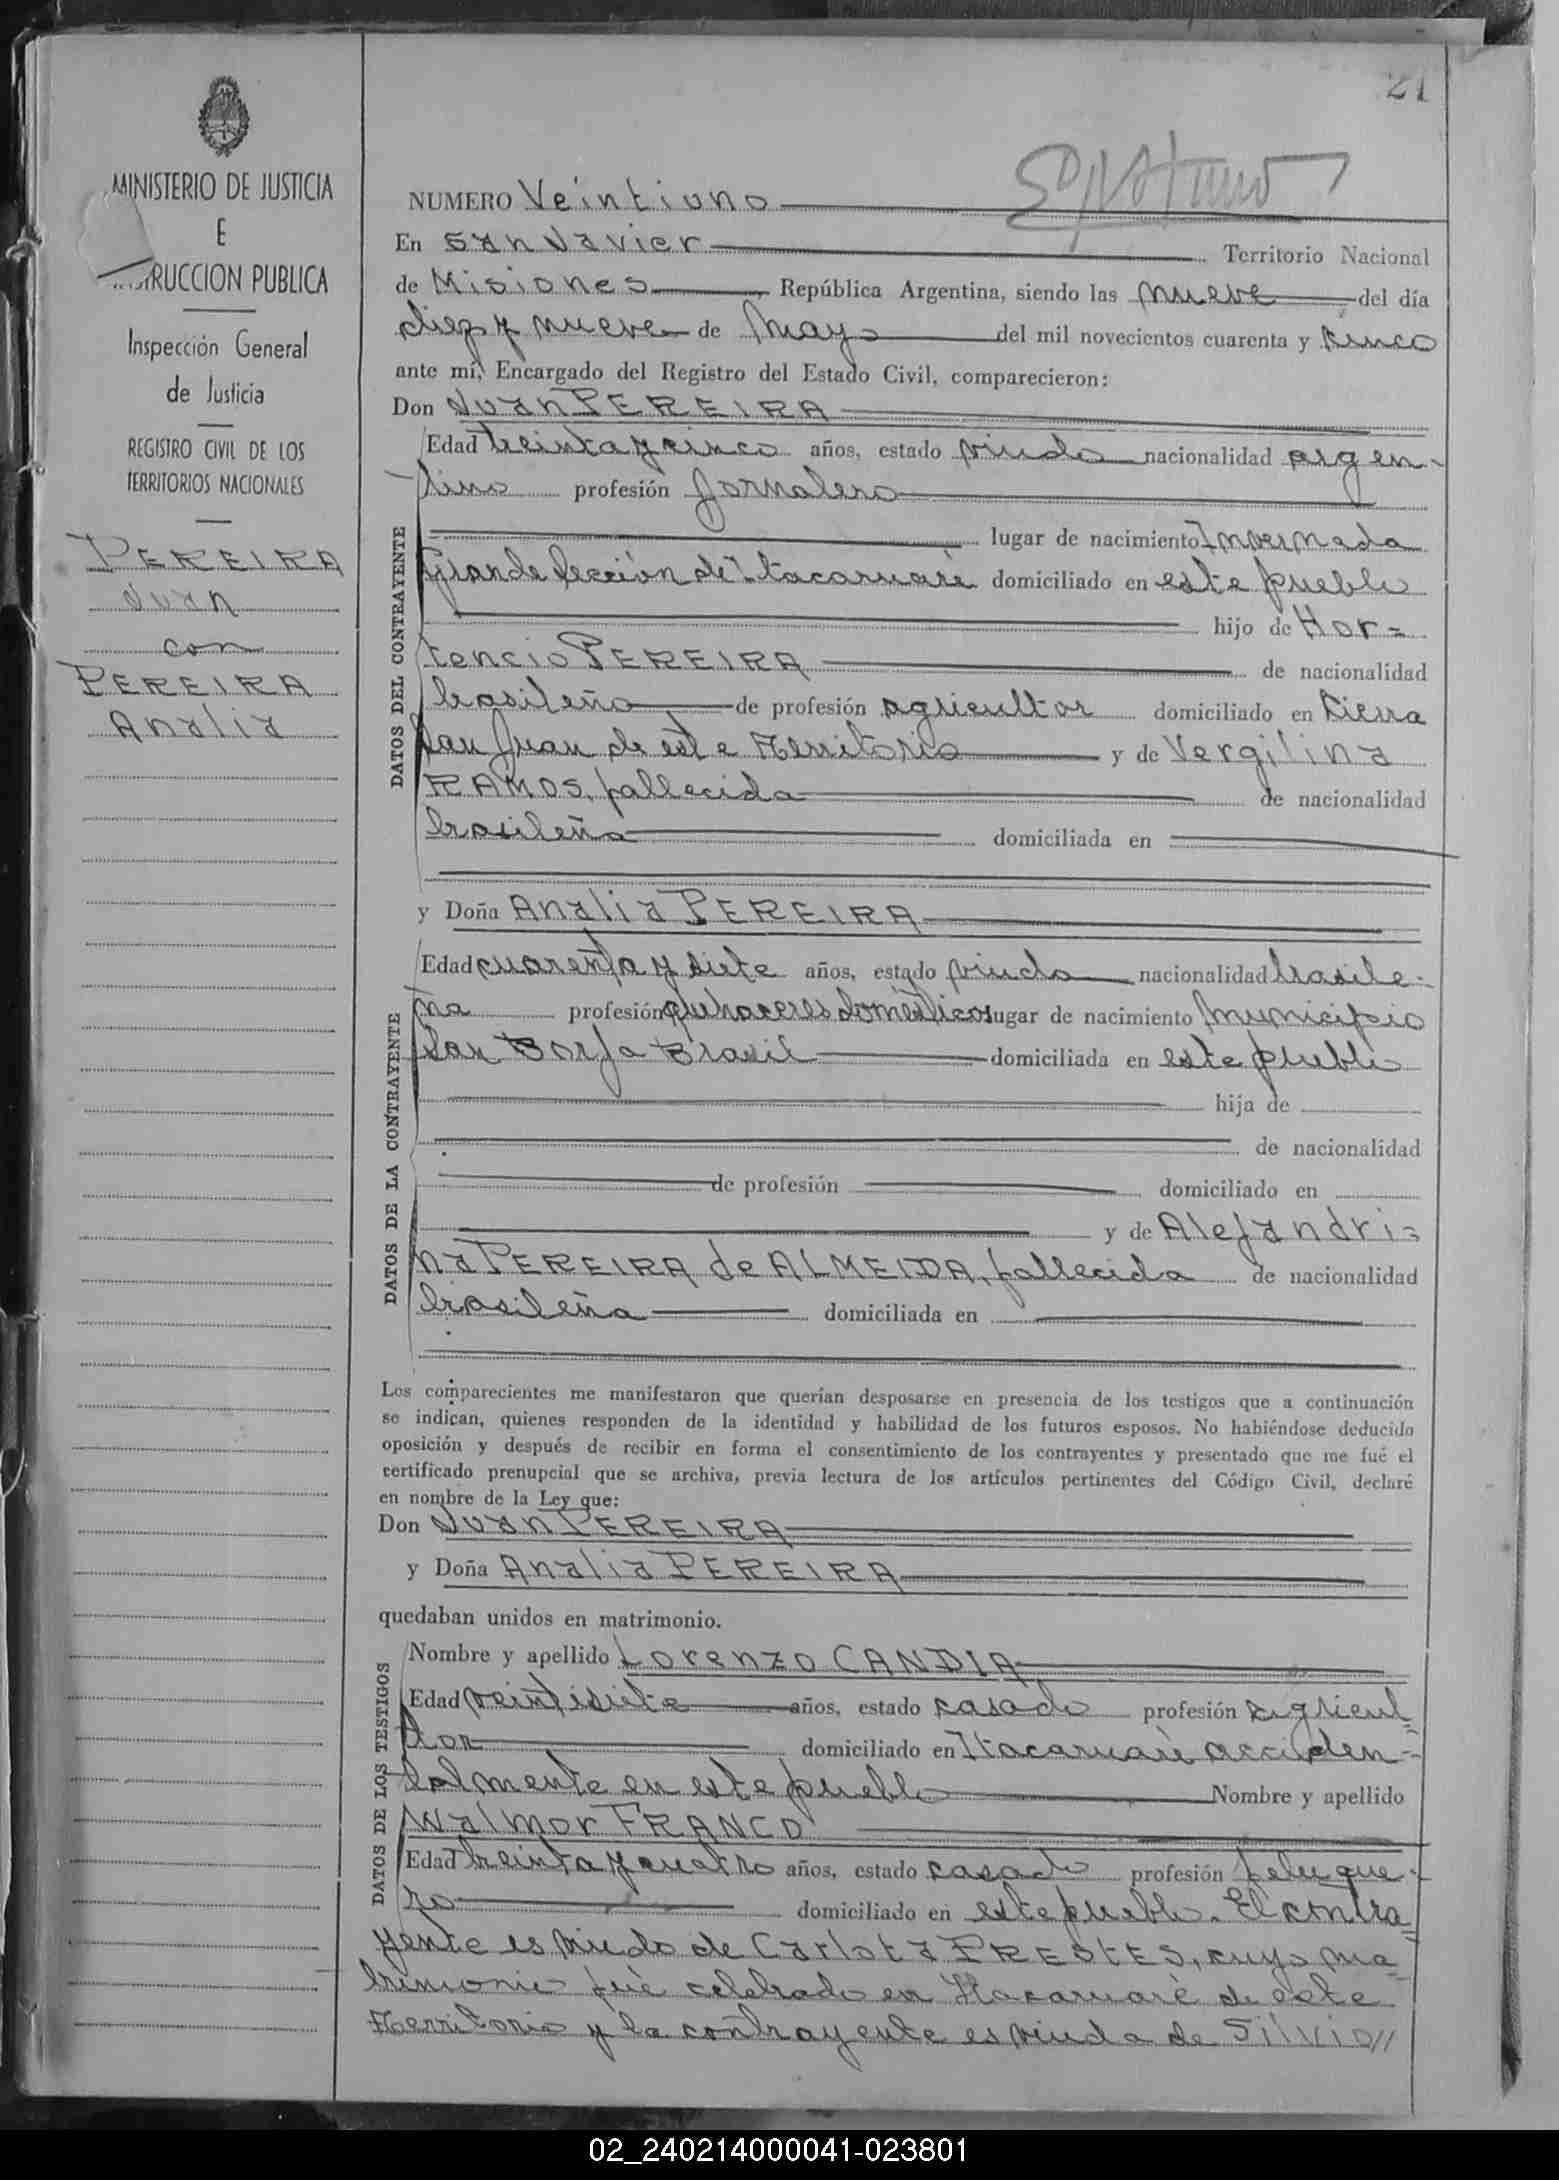 21
MINISTERIO DE JUSTICIA
E
RUCCION PUBLICA
Inspección General
de Justicia
REGISTRO CIVIL DE LOS
TERRITORIOS NACIONALES
PEREIRA
Juan
con
PEREIRA
Analia
NUMERO Veintiuno
En San Javier Territorio Nacional
de Misiones, República Argentina, siendo las nueve del día
diez y nueve de mayo del mil novecientos cuarenta y cinco
ante mí, Encargado del Registro del Estado Civil, comparecieron:
Don Juan PEREIRA
DATOS DEL CONTRAYENTE
Edad treinta y cinco años, estado viudo nacionalidad argen-
tino profesión jornalero
lugar de nacimiento Invernada
Grande Sección de Itacaruaré domiciliado en este pueblo
hijo de Hor=
tencio PEREIRA de nacionalidad
brasileño de profesión agricultor domiciliado en Sierra
San Juan de este Territorio y de Vergilina
RAMOS, fallecida de nacionalidad
brasileña domiciliada en
y Doña Analia PEREIRA
DATOS DE LA CONTRAYENTE
Edad cuarenta y siete años, estado viuda nacionalidad brasile-
ña profesión quehaceres domésticos lugar de nacimiento Municipio
San Borja Brasil domiciliada en este pueblo
hija de
de nacionalidad
de profesión domiciliado en
y de Alejandri=
na PEREIRA de ALMEIDA, fallecida de nacionalidad
brasileña domiciliada en
Los comparecientes me manifestaron que querían desposarse en presencia de los testigos que a continuación
se indican, quienes responden de la identidad y habilidad de los futuros esposos. No habiéndose deducido
oposición y después de recibir en forma el consentimiento de los contrayentes y presentado que me fué el
certificado prenupcial que se archiva, previa lectura de los artículos pertinentes del Código Civil, declaré
en nombre de la Ley que:
Don Juan PEREIRA
y Doña Analia PEREIRA
quedaban unidos en matrimonio.
DATOS DE LOS TESTIGOS
Nombre y apellido Lorenzo CANDIA
Edad veintisiete años, estado casado profesión agricul=
tor domiciliado en Itacaruaré acciden-
talmente en este pueblo Nombre y apellido
Walmor FRANCO
Edad treinta y cuatro años, estado casado profesión peluque-
ro domiciliado en este pueblo. El contra=
yente es viudo de Carlota PRESTES, cuyo ma=
trimonio fué celebrado en Itacaruaré de este
Territorio y la contrayente es viuda de Silvio//
02_240214000041-023801